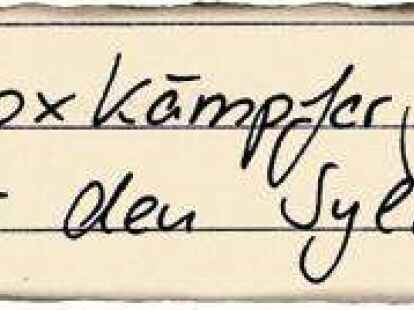 oxkämpfer j
den Syl